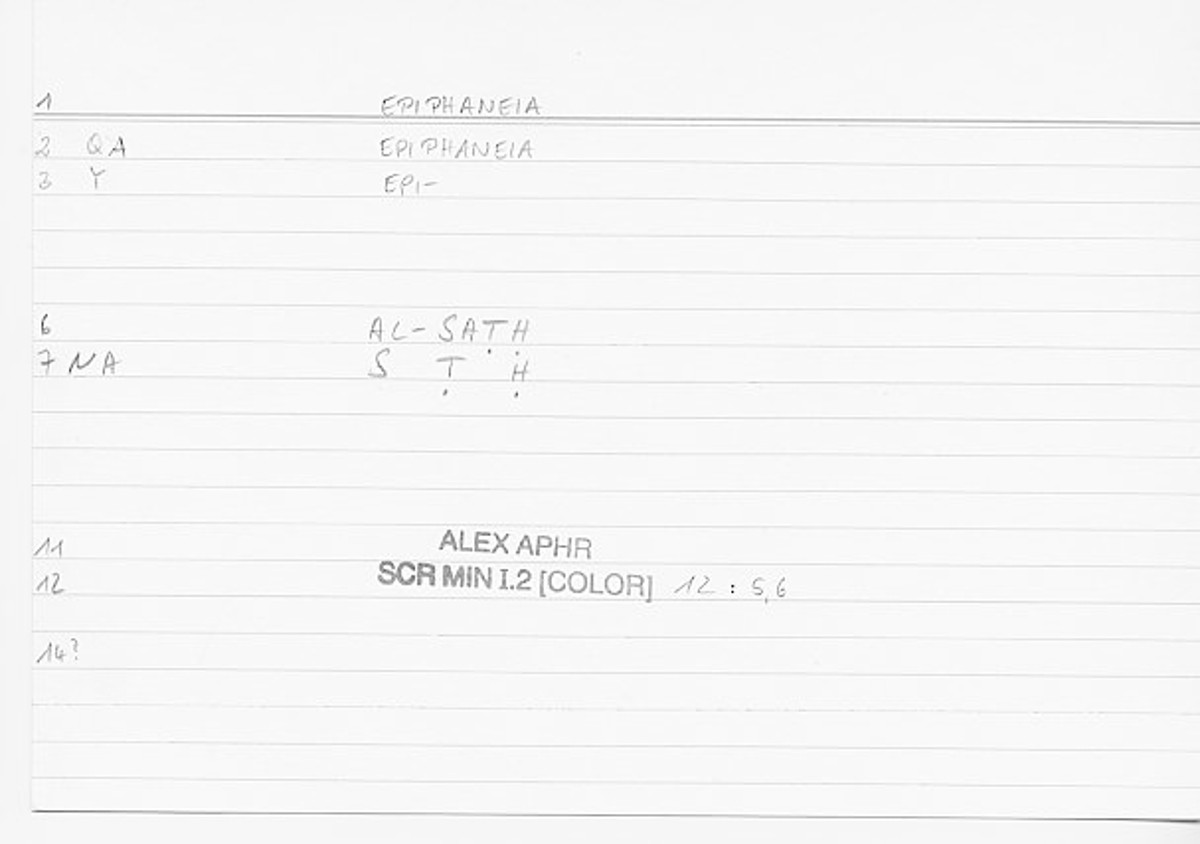 1 EPIPHANEIA
2 QA EPIPHANEIA
3 Y EPI-
6 AL-SAṬḤ
7 NA S Ṭ Ḥ
11 ALEX APHR
12 SCR MIN I.2 [COLOR] 12 : 5,6
14?